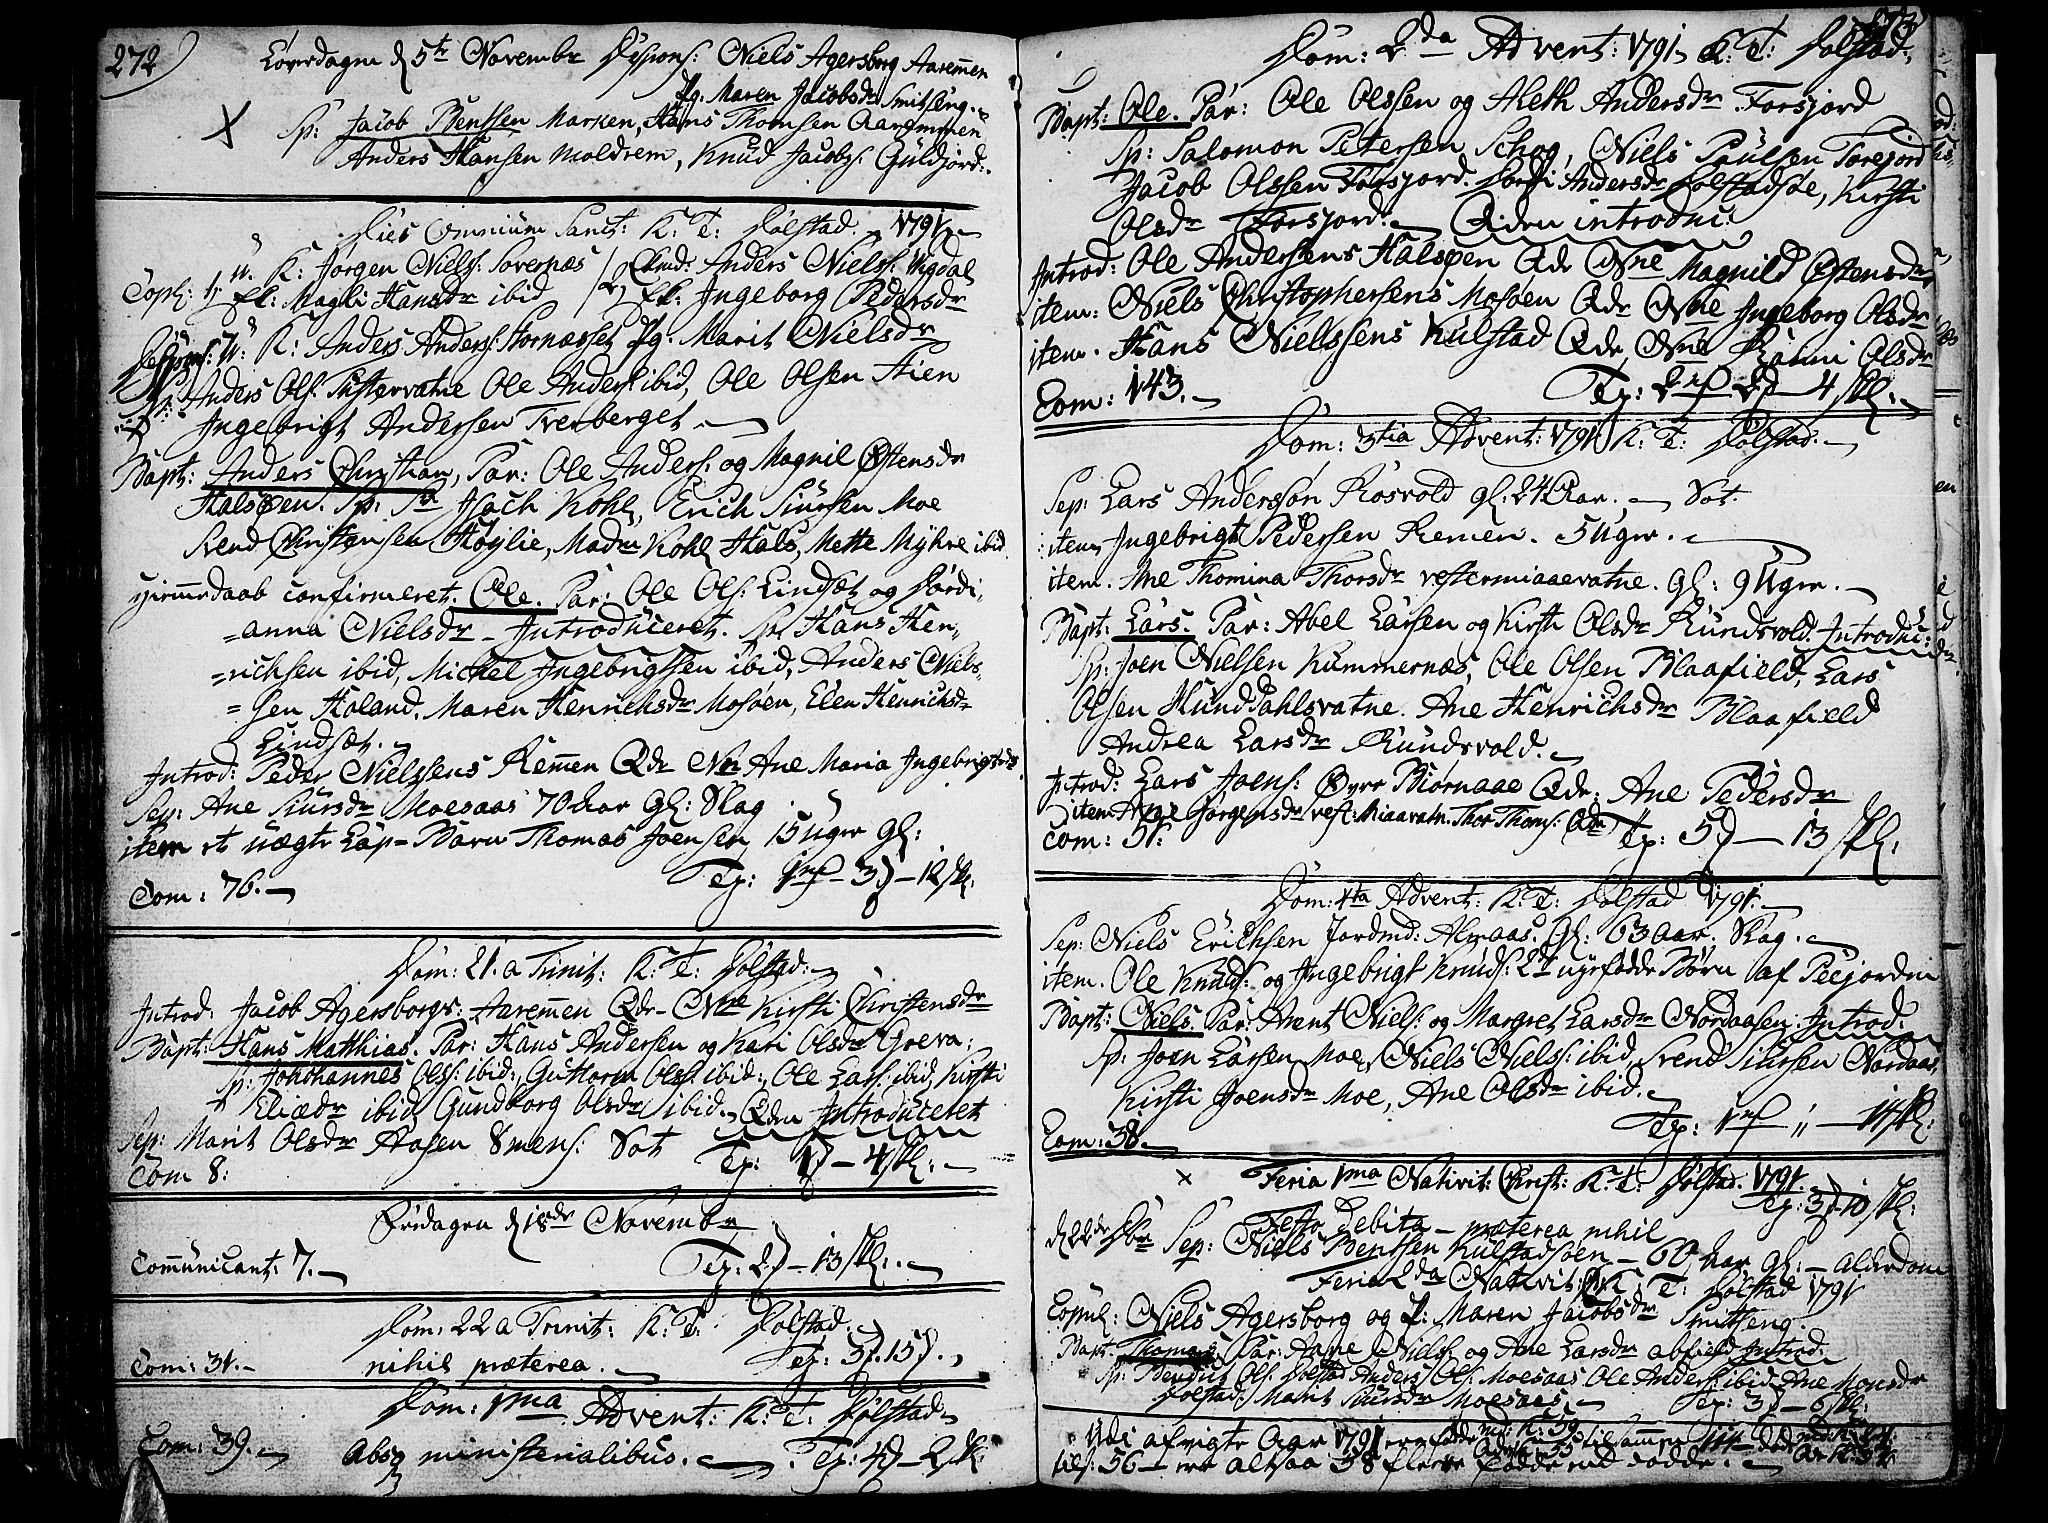 272
Løverdagen d 5te Novembr Despons: Niels Agersborg Aaremmen
Pg. Maren Jacobsdr Smitseng.
Sp: Jacob Bentsen Marken, Hans Thomsen Aaremmen
Anders Hansen Moldrem, Knud Jacobs: Guldjord.
Dies Omnium Sanct: K: T: Dolstad. 1791.
Copl: 1. u. K: Jorgen Niels: Sovernæs / 2 Enkmd: Anders Niels: Wigdal
Pl: Magli Hansdr ibid / Pl: Ingeborg Pedersdr
Despons: U: K: Anders Anders: Stornæsset Pg. Marit Nielsdr
Sp: Anders Ols: Tustervatne Ole Anders: ibid, Ole Olsen Stien
Ingebrigt Andersen Treberget
Bapt: Anders Christian, Par: Ole Anders: og Magnil Østensdr
Halsøen. Sp: Sr Isach Kohl, Erich Siursen Moe
Svend Christensen Høylie, Madm Kohl Hals, Mette Myhre ibid
Hiemedaab confirmeret. Ole. Par: Ole Ols: Lindsæt og Dordi-
=anna Nielsdr - Introduceret. Sp: Hans Hen-
=richsen ibid, Michel Ingebrigtsen ibid, Anders Niels-
=sen Holand. Maren Henrichsdr Mosøen, Elen Henrichsd
Lindsæt.
Introd: Peder Nielssens Remen Qde Nne Ane Maria Ingebrigtsdr.
Sep: Ane Siursdr Moesaas 70 Aar Gl: Slag
item et uægte Lap-Barn Thomas Joensen 15 Uger Gl:
Com: 76. Tep: 1 rf - 3 - 12 sk:
Dom: 21. a Trinit: K: T: Dolstad:
Introd: Jacob Agersborgs: Aaremmen Qde Nne Kirsti Christensdr
Bapt: Hans Matthias. Par: Hans Andersen og Kari Olsdr Greva:
Sp: Johohannes Ols: ibid:, Guttorm Ols: ibid:, Ole Lars: ibid, Kirsti
Eliædr ibid Gundborg Olsdr ibid. Qden Introduceret
Sep: Marit Olsdr Aasen 8 mens: Sot
Com 8: Tep: 1 - 4 sk:
Fredagen d 18de Novembr
Communicant: 7. Tep: 2 - 13 sk:
Dom: 22 a Trinit: K: T: Dolstad.
Com: 31. nihil præterea. Tep: 3 15
Dom: 1ma Advent: K: T: Dolstad
Com: 39. Absq ministerialibus. Tep: 4 - 2 sk:
Dom: 2da Advent: 1791 K: T: Dolstad.
Bapt: Ole. Par: Ole Olssen og Aleth Andersdr Forsjord
Sp: Salomon Petersen Schog, Niels Poulsen Forsjord
Jacob Olssen Forsjord. Dordi Andersdr Dolstadsøe, Kirsti
Olsdr Forsjord. Qden introduc:
Introd: Ole Andersens Halsøen Qde Nne Magnild Østensdr
item: Niels Christophersens Mosøen Qde Nne Ingeborg Olsdr
item. Hans Nielssens Kulstad Qde, Nne Ranni Olsdr
Com: 143. Tep: 2 rf 2 - 4 sk:
Dom: 3tia Advent: 1791 K: T: Dolstad.
Sep: Lars Anderssøn Rosvold gl: 24 Aar. Sot.
item, Ingebrigt Pedersen Remen. 5 Uger.
item. Ane Thomina Thorsdr vestermiaaevatne. Gl: 9 Uger.
Bapt: Lars. Par: Abel Larsen og Kirsti Olsdr Rundsvold. Introduc:
Sp: Joen Nielsen Kummernæs, Ole Olsen Blaafield, Lars
Olsen Hunddahlsvatne. Ane Henrichsdr Blaafield
Andrea Larsdr Rundsvold.
Introd: Lars Joens: Øvre Biornaae Qde: Ane Pedersdr
item Aage Jorgensdr vest: Miaavatn. Thor Thoms: Qde
Com: 51: Tep: 5 - 13 sk:
Dom: 4ta Advent: K: T: Dolstad 1791.
Sep: Niels Erichsen Jordmd: Almaas. Gl: 63 Aar. Slag.
item. Ole Knuds: og Ingebrigt Knuds: 2de nyefødde Børn af
Bapt: Niels. Par: Arent Niels: og Margret Larsdr Nordaasen. Introd:
Sp: Joen Larsen Moe, Niels Niels: ibid, Svend Siursen Nordaas
Kirsti Joensdr Moe, Ane Olsdr ibid.
Com: 38. Tep: 1 rf " - 14 sk:
Feria 1ma Nativit: Christ: K: T: Dolstad. 1791.
Tep: 3 10 sk:
Festo debita - præterea nihil
d 22de Sep: Niels Bentsen Kulstadsøen - 60 Aar gl: - Alderdom
Feria 2da Nativit: K: T: Dolstad 1791
Copul: Niels Agersborg og P: Maren Jacobsdr Smitseng.
Bapt. Thomas. Par: Aane Niels: og Ane Larsdr Introd:
Sp: Bendt Ols: Dolstad Anders Ols: Moesaas Ole Anders: ibid. Ane Monsdr
Dolstad. Marit Siursdr Moesaas. Tep: 3 - 6 sk:
Udi afvigte Aar 1791 ere fødde md: K: 59 tilsammen døde
til: 56 - ere altsaa 58 flere fødde end døde.